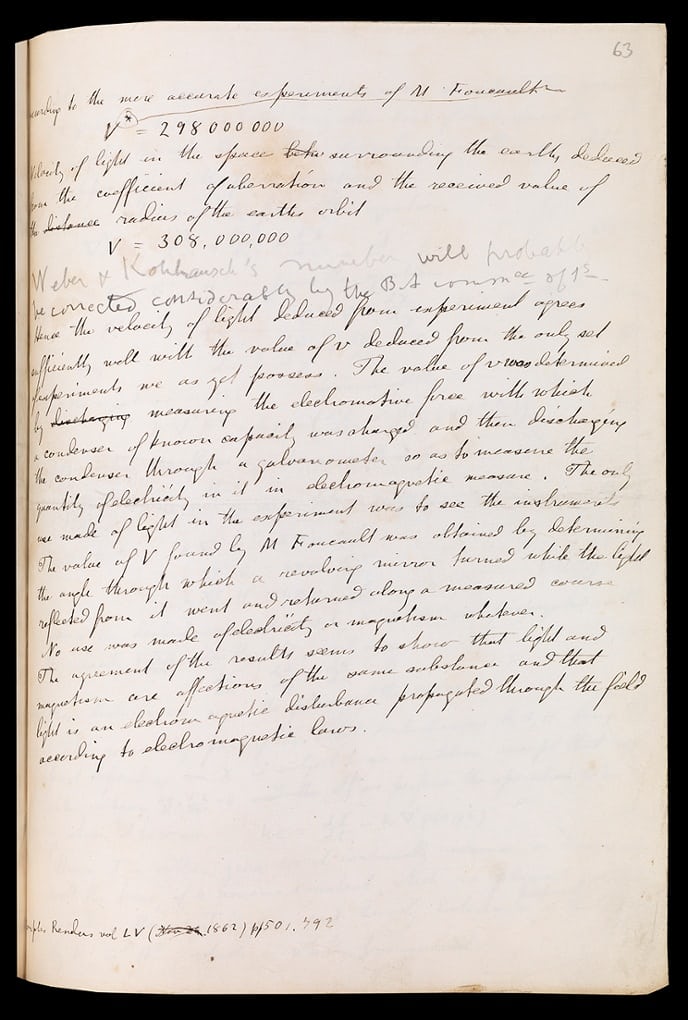 63
according to the more accurate experiments of M Foucault
V * = 298000000
Velocity of light in the space betw surrounding the earth, deduced
from the coefficient of aberration and the received value of
the distance radius of the earths orbit
V = 308,000,000
Weber & Kohlrausch's number will probably
be corrected considerably by the BA
Hence the velocity of light deduced from experiment agrees
sufficiently well with the value of v deduced from the only set
experiments we as yet possess. The value of v was determined
by discharging measuring the electromotive force with which
a condenser of known capacity was charged and then discharging
the condenser through a galvanometer so as to measure the
quantity of electricity in it in electromagnetic measure. The only
use made of light in the experiment was to see the instruments
The value of V found by M Foucault was obtained by determining
the angle through which a revolving mirror turned while the light
reflected from it went and returned along a measured course
No use was made of electricity or magnetism whatever.
The agreement of the results seems to show that light and
magnetism are affections of the same substance and that
light is an electromagnetic disturbance propagated through the field
according to electromagnetic laws.
Comptes Rendus vol LV (1862) pp 501, 792